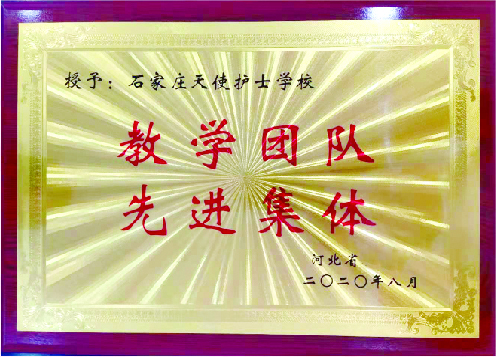 授予：石家庄天使护士学校
教学团队
先进集体
河北省
二〇二〇年八月